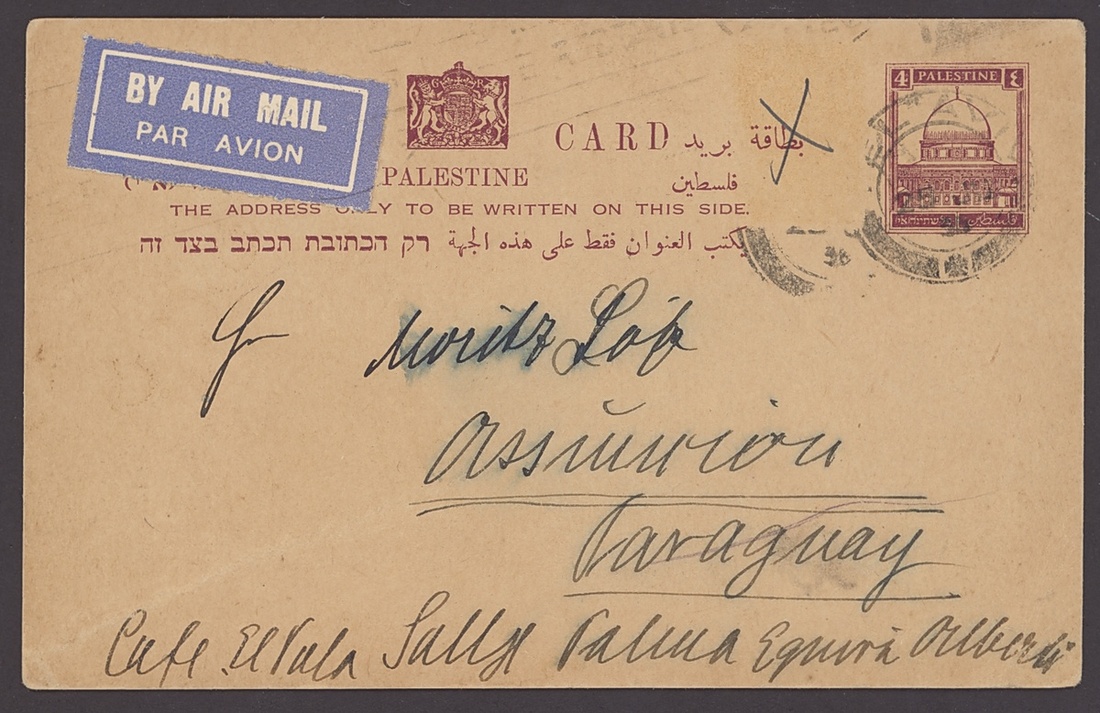 BY AIR MAIL
PAR AVION
G R
CARD بطاقة بريد
PALESTINE فلسطين
THE ADDRESS ONLY TO BE WRITTEN ON THIS SIDE.
يكتب العنوان فقط على هذه الجهة רק הכתובת תכתב בצד זה
4 PALESTINE ٤
فلسطين
TEL AVIV
36
Moritz Löb
Assuncion
Paraguay
Cafe El Vala Callje Palma Equina Alberdi